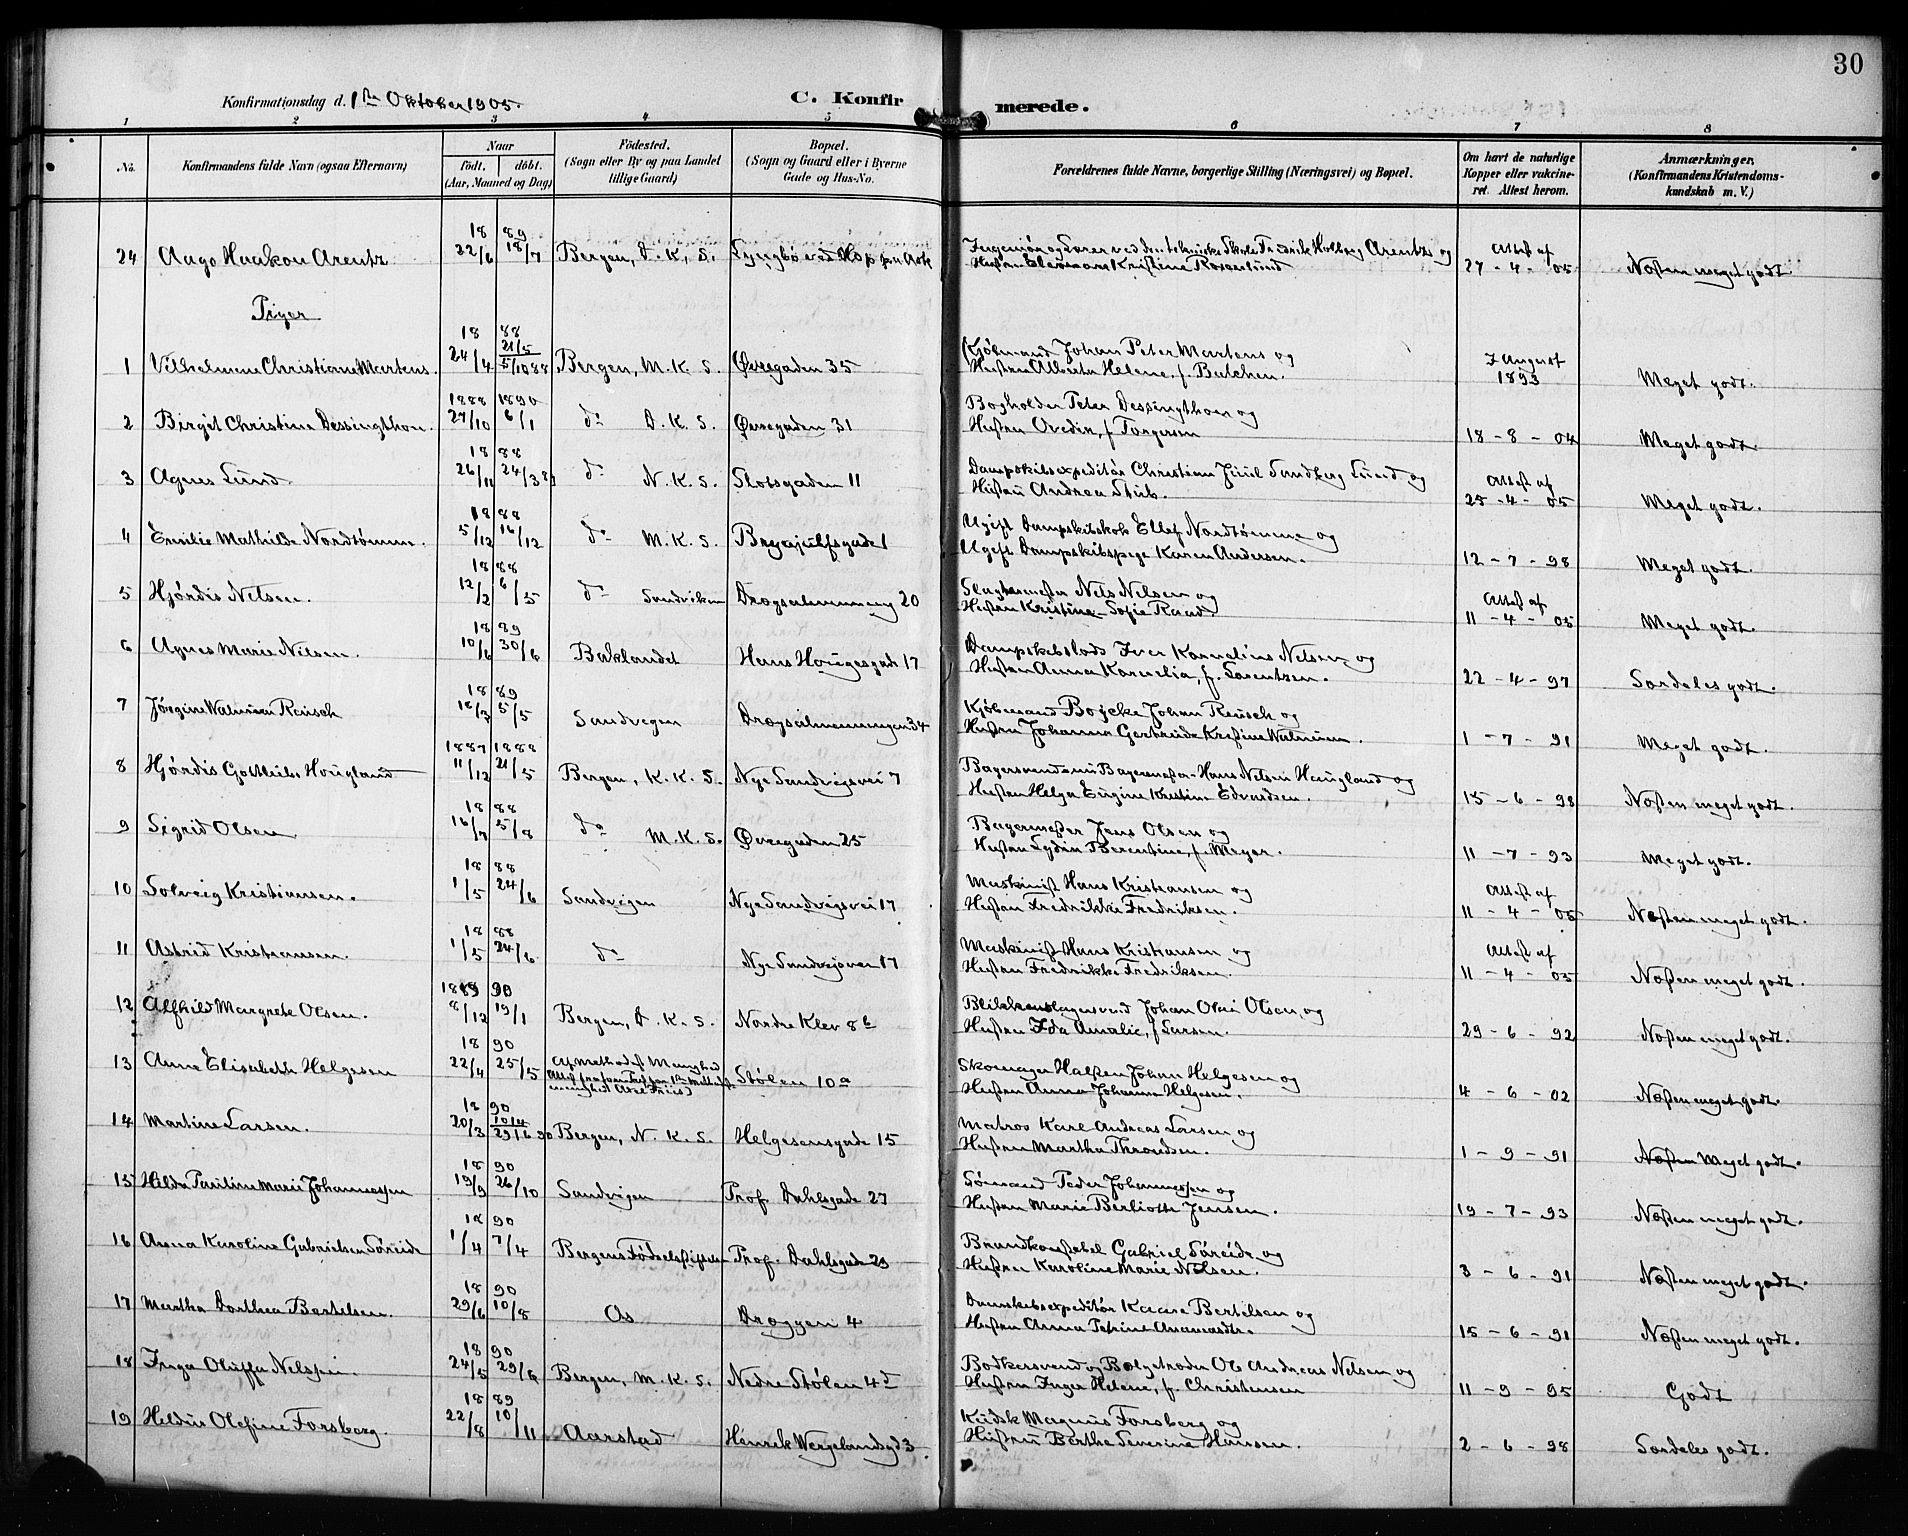 30
Konfirmationsdag d. 1ste Oktober 1905.
C. Konfirmerede.
1 2 3 4 5 6 7 8
No.
Konfirmandens fulde Navn (ogsaa Efternavn)
Naar
födt. döbt.
(Aar, Maaned og Dag)
Födested.
(Sogn eller By og paa Landet
tillige Gaard)
Bopæl.
(Sogn og Gaard eller i Byerne
Gade og Hus-No.
Forældrenes fulde Navne, borgerlige Stilling (Næringsvei) og Bopæl.
Om havt de naturlige
Kopper eller vakcine-
ret. Attest herom.
Anmærkninger.
(Konfirmandens Kristendoms-
kundskab m. V.)
18 89
24 Aage Haakon Arentz 22/6 18/7 Bergen, D. K. S.
Ingeniør og Lærer ved den tekniske Skole Fredrik Holberg Arentz og
Attest af
27 - 4 - 05 Næsten meget godt.
Piger
18 88
1 Vilhelmine Christiane Martens. 24/4 21/5 5/10 88 Bergen, M. K. S. Øvregaden 35
Kjøbmand Johan Peter Martens og
Hustru Alberta Helene, f. Butchen.
7 August
1893 Meget godt.
1888 1890
2 Birgit Christine Dessingthon. 27/10 6/1 do D. K. S. Øvregaden 31
Bogholder Peter Dessingthon og
Hustru Ovedia, f. Torgersen
18 - 8 - 04 Meget godt.
18 88
3 Agnes Lund. 26/11 24/3 89 do N. K. S. Slotsgaden 11
Dampskibsexpeditør Christian Juul Sundberg Lund og
Hustru Andrea Stub.
Attest af
25 - 4 - 05 Meget godt.
18 88
4 Emilie Mathilde Nordtømme. 5/12 16/12 do M. K. S.
Ugift Dampskibskok Ellef Nordtømme og
Ugift Dampskibspige Karen Andersen.
12 - 7 - 98 Meget godt.
18 88
5 Hjørdis Nilsen. 12/2 6/5 do Sandviken Drægsalmenning 20
Slagtermester Nils Nilsen og
Hustru Kristine Sofie Raad.
Attest af
11 - 4 - 05 Meget godt.
18 89
6 Agnes Marie Nilsen. 10/6 30/6 Baklandet Hans Hougesgade 17
Dampskibslods Iver Kornelius Nilsen og
Hustru Anna Kornelia, f. Lorentzen.
22 - 4 - 97 Særdeles godt.
18 89
7 Jørgine Walmian Reusch 5/5 Sandvigen Drægsalmenningen 34
Kjøbmand Boycke Johan Reusch og
Hustru Johanna Gertrude Kristine Walmian.
1 - 7 - 91 Meget godt.
1887 1888
8 Hjørdis Gottlieb Hougland 11/12 21/5 Bergen, K. K. S. Nye Sandvigsvei 7
Bagersvend nu Bagermester Hans Nilsen Haugland og
Hustru Helga Eugine Kristine Edvardsen.
15 - 6 - 98 Næsten meget godt.
18 88
9 Sigrid Olsen 16/7 5/8 do M. K. S. Øvregaden 25
Bagermester Jens Olsen og
Hustru Lydia Berentine, f. Meyer.
11 - 7 - 93 Meget godt.
18 88
10 Solveig Kristiansen. 1/5 24/6 Sandvigen Nye Sandvigsvei 17
Maskinist Hans Kristiansen og
Hustru Fredrikke Fredriksen.
Attest af
11 - 4 - 05 Næsten meget godt.
18 88
11 Astrid Kristiansen. 1/5 24/6 do Nye Sandvigsvei 17
Maskinist Hans Kristiansen og
Hustru Fredrikke Fredriksen.
Attest af
11 - 4 - 05 Næsten meget godt.
1889 90
12 Alfhild Margrete Olsen. 8/12 19/1 Bergen, D. K. S. Nordre Klev 8b
Blikkenslagersvend Johan Olai Olsen og
Hustru Ida Amalie, f. Larsen.
29 - 6 - 92 Næsten meget godt.
18 90
13 Anne Elisabeth Helgesen 22/4 25/5 Af Methodist Menighed Stølen 10a
Skomager Halfen Johan Helgesen og
Hustru Anna Johanne Helgesen.
4 - 6 - 02 Næsten meget godt.
18 90
14 Martine Larsen. 20/3 10/4 29/6 90 Bergen, N. K. S. Helgesensgade 15
Matros Karl Andreas Larsen og
Hustru Martha Throndsen.
1 - 9 - 91 Næsten Meget godt.
18 90
15 Hilda Pauline Marie Johannessen 19/9 26/10 Sandvigen Prof. Dahlsgade 27
Sømand Peder Johannessen og
Hustru Marie Berliotte Jensen.
19 - 7 - 93 Næsten meget godt.
18 90
16 Anna Karoline Gabrielsen Søreide 1/4 7/4 Bergens Fødselsstiftelse Prof. Dahlsgade 23
Brandkonstabel Gabriel Søreide og
Hustru Karoline Marie Nilsen.
3 - 6 - 91 Næsten meget godt.
18 90
17 Martha Dorthea Bertilsen. 29/6 10/8 Os Dræggen 4
Damskibsexpeditør Kaare Bertilsen og
Hustru Anna Petrine
15 - 6 - 91 Næsten meget godt.
18 90
18 Inga Oluffa Nilssen. 24/5 29/6 Bergen, M. K. S. Nedre Stølen 4d
Bødkersvend og Bælgetræder Ole Andreas Nilsen og
Hustru Inger Helene, f. Christensen
11 - 9 - 95 Godt
18 89
19 Heldur Olefine Forsberg. 22/8 10/11 Aarstad Henrik Wergelandsgd 3
Kudsk Magnus Forsberg og
Hustru Berthe Severine Hansen.
2 - 6 - 98 Særdeles godt.